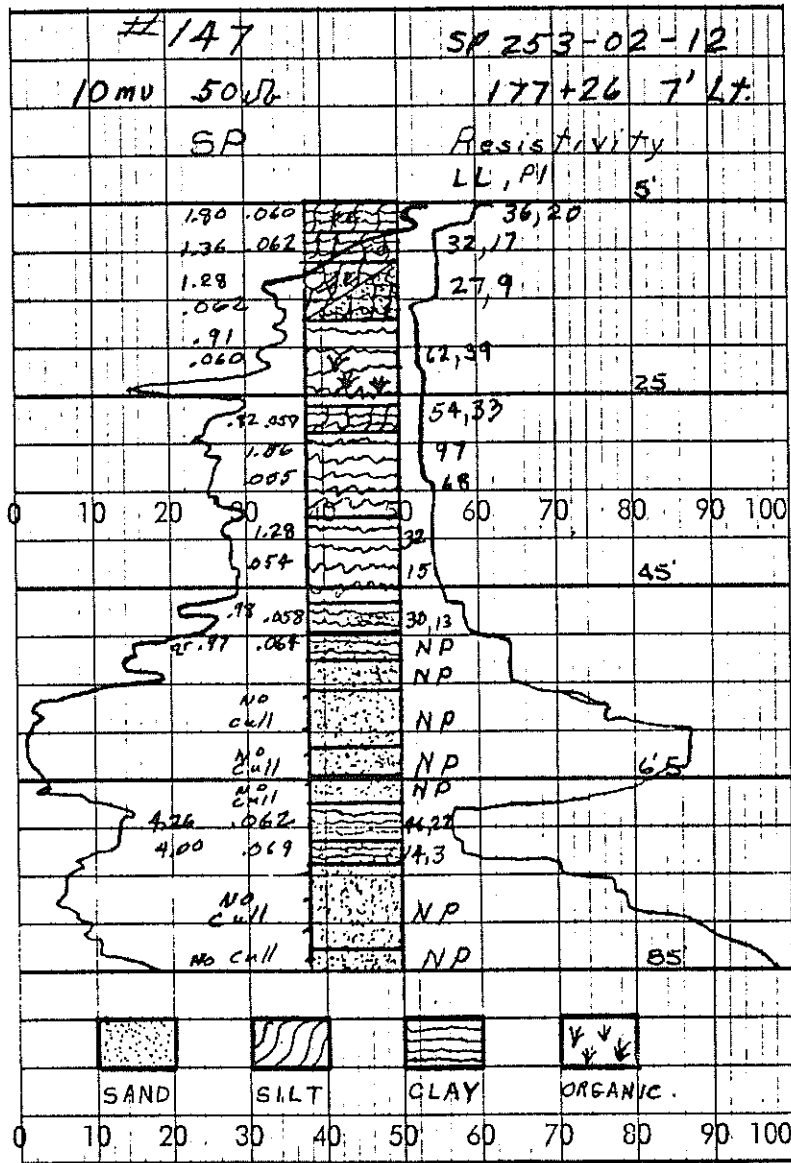 #147 SP 253-02-12
10 mv 50Ω 177+26 7' Lt.
SP Resistivity
LL, PI 5'
1.80 .060 36,20
1.36 .062 32,17
1.28 27,9
.062
.91
.060 62,39
25
.82 .058 54,33
1.06 97
.055 68
0 10 20 30 40 50 60 70 80 90 100
1.28 32
.054 15 45'
.98 .058 30,13
.97 .064 NP
NP
No
Cull NP
No
Cull NP 65
No
Cull NP
4.26 .062 46,27
4.00 .069 14,3
No
Cull NP
No Cull NP 85
SAND SILT CLAY ORGANIC.
0 10 20 30 40 50 60 70 80 90 100